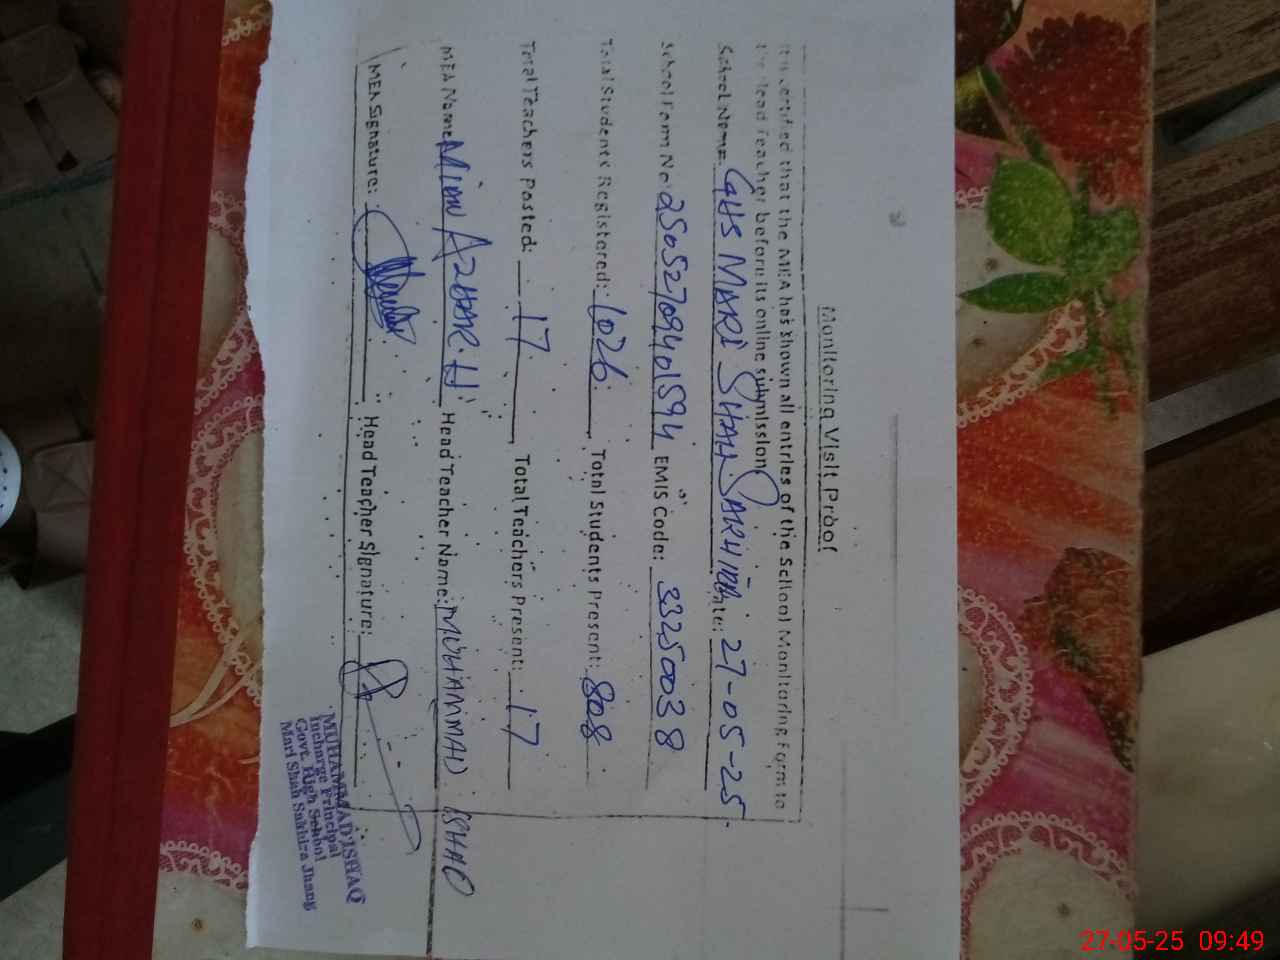 Monitoring Visit Proof
It is certified that the MEA has shown all entries of the School Monitoring Form to
the Head Teacher before its online submission
School Name: GHS MARI SHAH SAKHIRA Date: 27-05-25
School Form No: 25052709401594 EMIS Code: 33250038
Total Students Registered: 1026 Total Students Present: 808
Total Teachers Posted: 17 Total Teachers Present: 17
MEA Name: MIAN AZHAR.H Head Teacher Name: MUHAMMAD ISHAQ
MEA Signature: Head Teacher Signature:
MUHAMMAD ISHAQ
Incharge Principal
Govt. High School
Mari Shah Sakhira Jhang
27-05-25 09:49